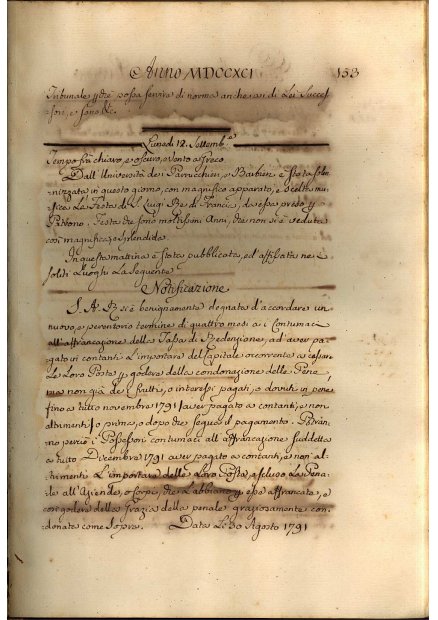 Anno MDCCXCI 153
Tribunale possa servire di norma anche ai di Lei Succes-
sori, e sono &c.
Lunedì 12. Settemb.e
Tempo frà chiaro, e oscuro, e vento a Greco.
Dall' Università de' Parrucchieri, e Barbieri è stata solen-
nizzata in questo giorno, con magnifico apparato, e scelta mu-
sica La Festa di S. Luigi Re di Francia, da essi preso p
Festa che sono moltissimi Anni, che non si è veduta
così magnifica, e splendida.
In questa mattina è stata pubblicata, ed affissata ne'
soliti Luoghi La seguente
Notificazione
S. A. R. si è benignamente degnata d'accordare un
nuovo, e perentorio termine di quattro mesi a i Contumaci
all'affrancazione della Tassa di Redenzione, ad aver pa-
gato in contanti L'importare del Capitale occorrente a cassare
Le Loro Poste godere della condonazione delle Pene
ma non già de' frutti, o interessi pagati, o dovuti in pena
fino a tutto novembre 1791 aver pagato a contanti, e non
altrimenti, o prima, o dopo che segue il pagamento. Potran-
no perciò i Possessori contumaci all'affrancazione suddetta
a tutto Dicembre 1791 aver pagato a contanti, e non al-
trimenti L'importare delle Loro Poste, escluso La Pena-
le all'Aziende, o Corpi, che L'abbiano essa affrancata, e
così godere della Grazia della penale graziosamente con-
donata come sopra. Data Li 30 Agosto 1791